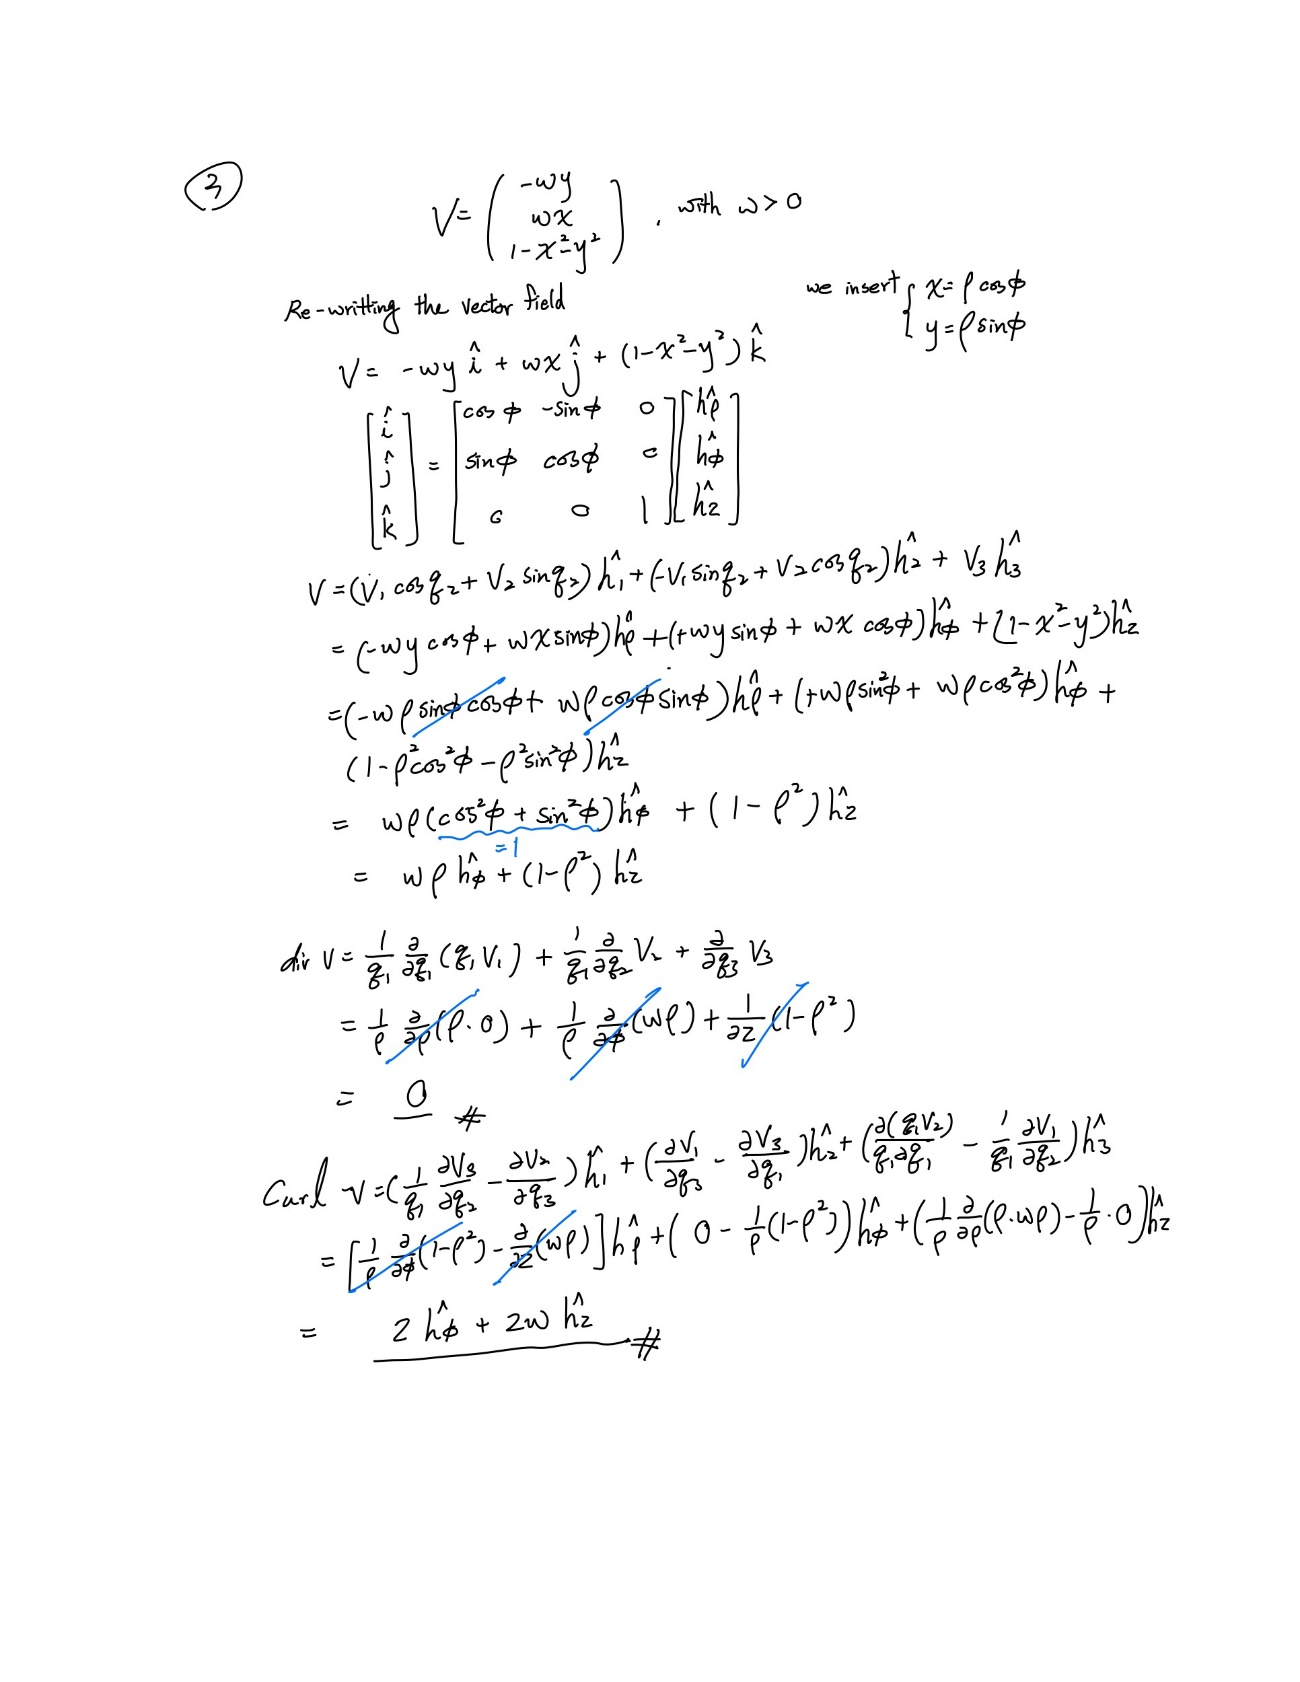 ③
V = ( -wy
wx
1-x²-y² ) , with ω > 0
Re-writting the vector field
we insert { x = ρ cosϕ
y = ρ sinϕ
V = -wy î + wx ĵ + (1-x²-y²) k̂
[î ĵ k̂] = [cosϕ -sinϕ 0
sinϕ cosϕ 0
0 0 1] [ĥρ ĥϕ ĥz]
V = (V₁ cos q₂ + V₂ sin q₂) ĥ₁ + (-V₁ sin q₂ + V₂ cos q₂) ĥ₂ + V₃ ĥ₃
= (-wy cosϕ + wx sinϕ) ĥρ + (+wy sinϕ + wx cosϕ) ĥϕ + (1-x²-y²) ĥz
= (-wρ sinϕ cosϕ + wρ cosϕ sinϕ) ĥρ + (+wρ sin²ϕ + wρ cos²ϕ) ĥϕ +
(1 - ρ²cos²ϕ - ρ²sin²ϕ) ĥz
= wρ (cos²ϕ + sin²ϕ) ĥϕ + (1 - ρ²) ĥz
=1
= wρ ĥϕ + (1-ρ²) ĥz
div V = 1/q₁ ∂/∂q₁ (q₁ V₁) + 1/q₁ ∂/∂q₂ V₂ + ∂/∂q₃ V₃
= 1/ρ ∂/∂ρ (ρ·0) + 1/ρ ∂/∂ϕ (wρ) + 1/∂z (1-ρ²)
= 0 #
Curl V = (1/q₁ ∂V₃/∂q₂ - ∂V₂/∂q₃) ĥ₁ + (∂V₁/∂q₃ - ∂V₃/∂q₁) ĥ₂ + (∂(q₁V₂)/q₁∂q₁ - 1/q₁ ∂V₁/∂q₂) ĥ₃
= [1/ρ ∂/∂ϕ (1-ρ²) - ∂/∂z (wρ)] ĥρ + (0 - 1/ρ (1-ρ²)) ĥϕ + (1/ρ ∂/∂ρ (ρ·wρ) - 1/ρ·0) ĥz
= 2 ĥϕ + 2w ĥz #